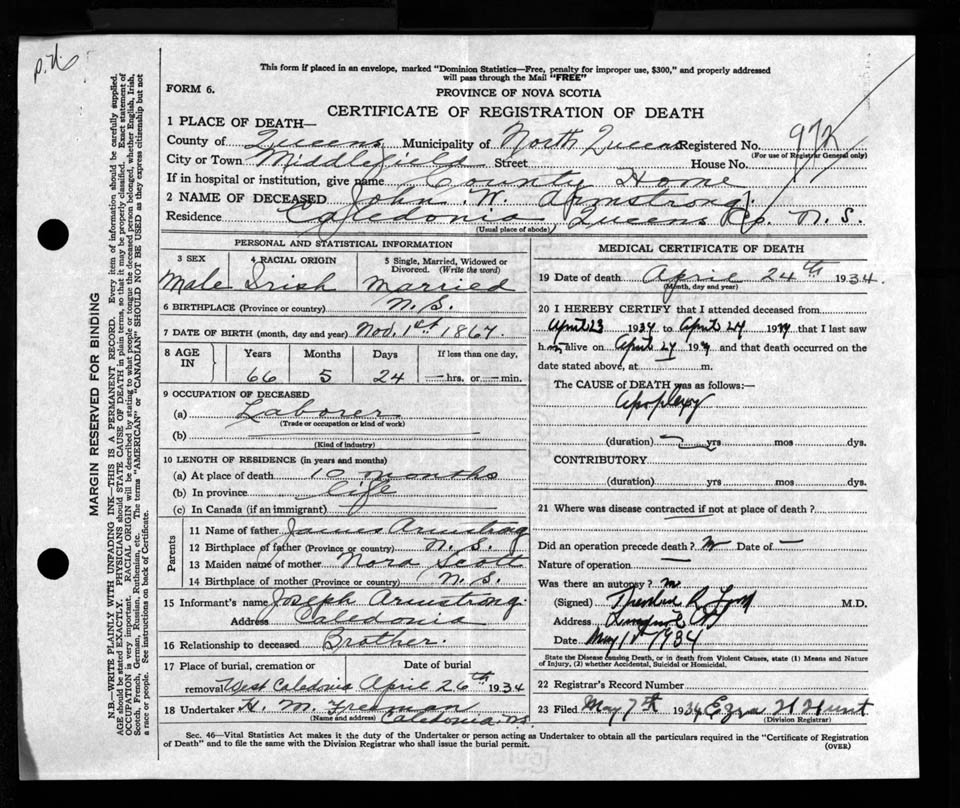 This form if placed in an envelope, marked "Dominion Statistics—Free, penalty for improper use, $300," and properly addressed
will pass through the Mail "FREE"
FORM 6.
PROVINCE OF NOVA SCOTIA
CERTIFICATE OF REGISTRATION OF DEATH
1 PLACE OF DEATH—
County of Queens Municipality of North Queens Registered No. 972
(For use of Registrar General only)
City or Town Middlefield Street House No.
If in hospital or institution, give name County Home
2 NAME OF DECEASED John W. Armstrong
Residence Caledonia Queens Co. N.S.
(Usual place of abode)
PERSONAL AND STATISTICAL INFORMATION
3 SEX 4 RACIAL ORIGIN 5 Single, Married, Widowed or Divorced. (Write the word)
Male Irish Married
6 BIRTHPLACE (Province or country) N.S.
7 DATE OF BIRTH (month, day and year) Nov. 1st 1867
8 AGE IN Years Months Days If less than one day,
66 5 24 — hrs. or — min.
9 OCCUPATION OF DECEASED
(a) Laborer
(Trade or occupation or kind of work)
(b)
(Kind of industry)
10 LENGTH OF RESIDENCE (in years and months)
(a) At place of death 10 months
(b) In province life
(c) In Canada (if an immigrant)
Parents
11 Name of father James Armstrong
12 Birthplace of father (Province or country) N.S.
13 Maiden name of mother Nora Scott
14 Birthplace of mother (Province or country) N.S.
15 Informant's name Joseph Armstrong.
Address Caledonia
16 Relationship to deceased Brother.
17 Place of burial, cremation or Date of burial
removal West Caledonia April 26th 1934
18 Undertaker H. M. Freeman
(Name and address) Caledonia NS
MEDICAL CERTIFICATE OF DEATH
19 Date of death April 24th 1934.
(Month, day and year)
20 I HEREBY CERTIFY that I attended deceased from
April 23 1934 to April 24 1934 that I last saw
him alive on April 24 1934 and that death occurred on the
date stated above, at m.
The CAUSE OF DEATH was as follows:—
Apoplexy
(duration) yrs mos dys.
CONTRIBUTORY
(duration) yrs. mos. dys.
21 Where was disease contracted if not at place of death?
Did an operation precede death? Date of —
Nature of operation —
Was there an autopsy?
(Signed) M.D.
Address
Date May 1934
State the Disease causing Death, or in death from Violent Causes, state (1) Means and Nature
of Injury, (2) whether Accidental, Suicidal or Homicidal.
22 Registrar's Record Number
23 Filed May 7th 1934 Ezra H Hunt
(Division Registrar)
Sec. 46—Vital Statistics Act makes it the duty of the Undertaker or person acting as Undertaker to obtain all the particulars required in the "Certificate of Registration
of Death" and to file the same with the Division Registrar who shall issue the burial permit.
(OVER)
MARGIN RESERVED FOR BINDING
N.B.—WRITE PLAINLY WITH UNFADING INK—THIS IS A PERMANENT RECORD. Every item of information should be carefully supplied.
AGE should be stated EXACTLY. PHYSICIANS should STATE CAUSE OF DEATH in plain terms, so that it may be properly classified. Exact statement of
OCCUPATION is very important. RACIAL ORIGIN will be described by stating to what people or tongue the deceased person belonged, whether English, Irish,
Scotch, French, German, Russian, Ruthenian, etc. The terms "AMERICAN" or "CANADIAN" SHOULD NOT BE USED as they express citizenship but not
a race or people. See instructions on back of Certificate.